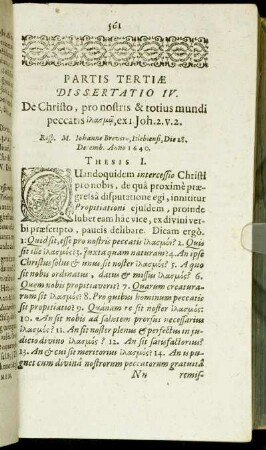 561
PARTIS TERTIÆ
DISSERTATIO IV.
De Christo, pro nostris & totius mundi
peccatis ἱλασμῷ, ex 1. Joh. 2. v. 2.
Resp. M. Johanne Brevero, Islebiensi, Die 28.
Decemb. Anno 1640.
THESIS I.
QUandoquidem intercessio Christi
pro nobis, de quâ proximè præ-
gressâ disputatione egi, innititur
Propitiationi ejusdem, proinde
lubet eam hâc vice, ex divini ver-
bi præscripto, paucis delibare. Dicam ergò.
1. Quid sit, esse pro nostris peccatis ἱλασμόν? 2. Quis
sit ille ἱλασμός? 3. juxta quam naturam? 4. An ipse
Christus solus & unus sit noster ἱλασμός? 5. A quo
sit nobis ordinatus, datus & missus ἱλασμός? 6.
Quem nobis propitiaverit? 7. Quarum creaturarum
rum sit ἱλασμός? 8. Pro quibus hominum peccatis
sit propitiatio? 9. Quanam re sit noster ἱλασμός?
10. An sit nobis ad salutem prorsus necessarius
ἱλασμός? 11. An sit noster plenus & perfectus in ju-
dicio divino ἱλασμός? 12. An sit satisfactorius?
13. An & cui sit meritorius ἱλασμός? 14. An is pu-
gnet cum divinâ nostrorum peccatorum gratuitâ
Nn
remis-